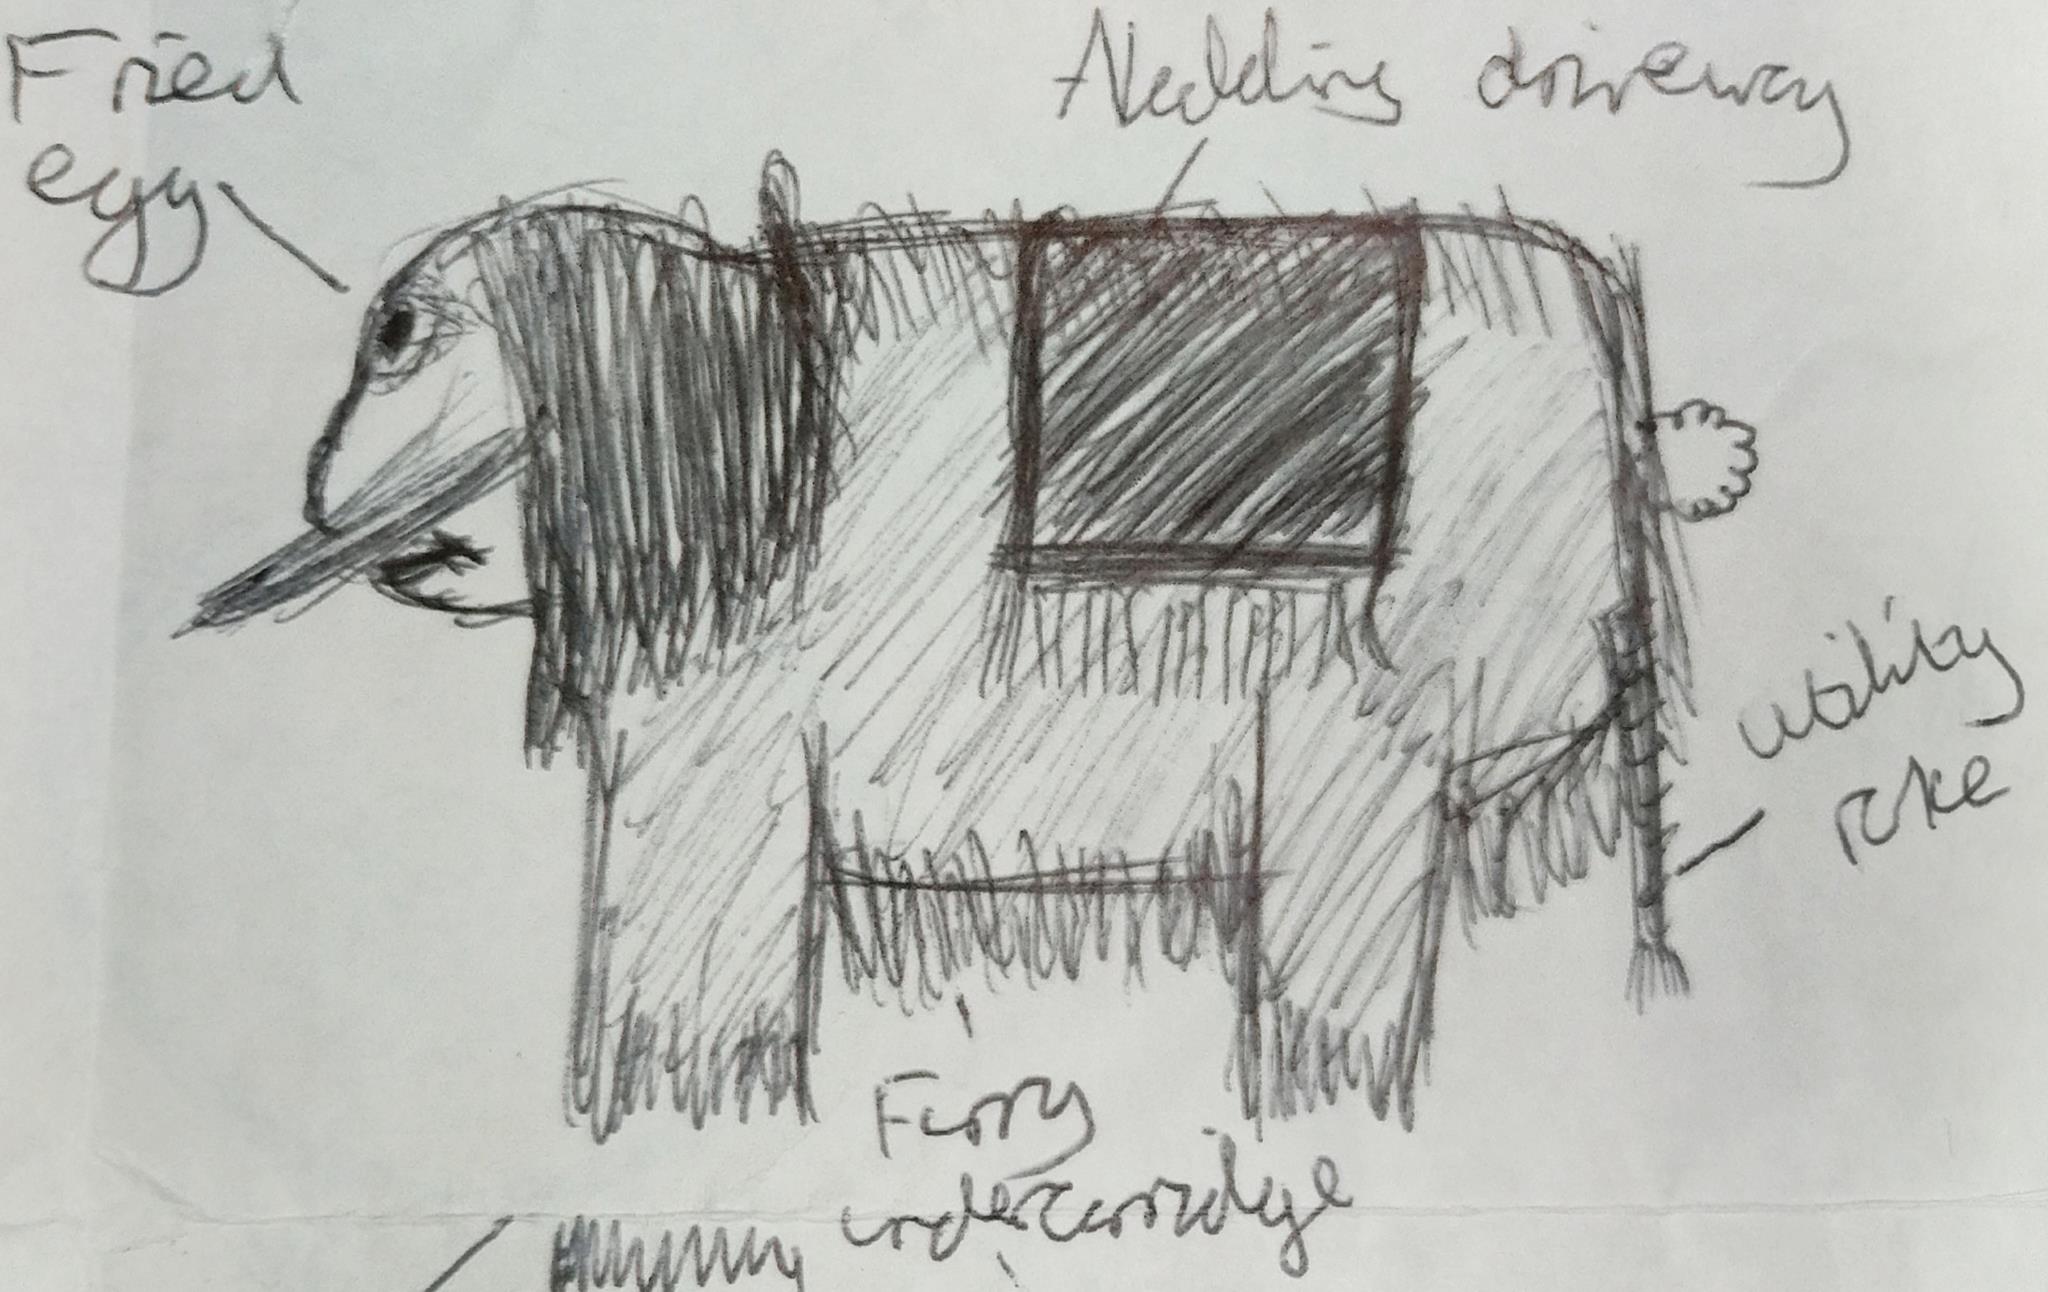 Fried
egg
Nedding driveway
utility
rake
Furry
undercarridge